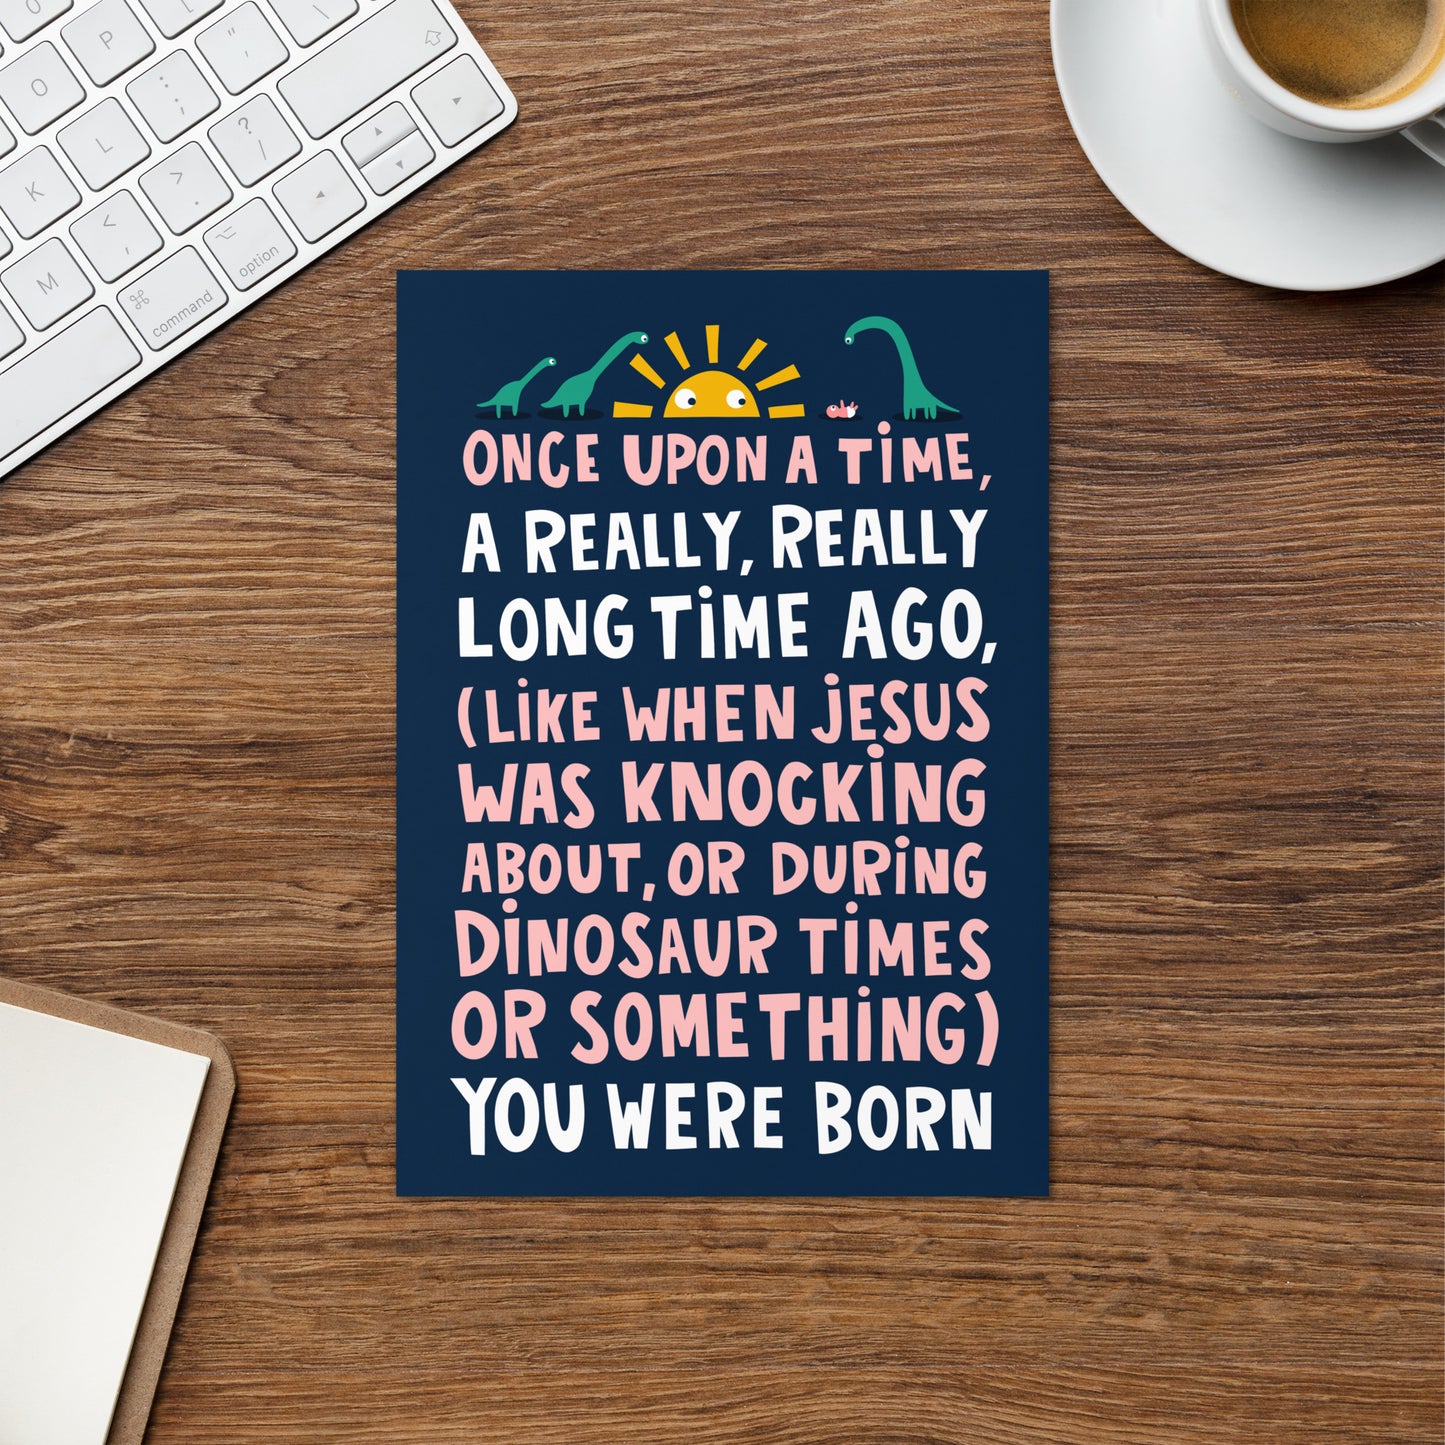 O
P
" '
K
L
: ;
? /
M
< ,
> .
command
option
ONCE UPON A TIME,
A REALLY, REALLY
LONG TIME AGO,
(LIKE WHEN JESUS
WAS KNOCKING
ABOUT, OR DURING
DINOSAUR TIMES
OR SOMETHING)
YOU WERE BORN